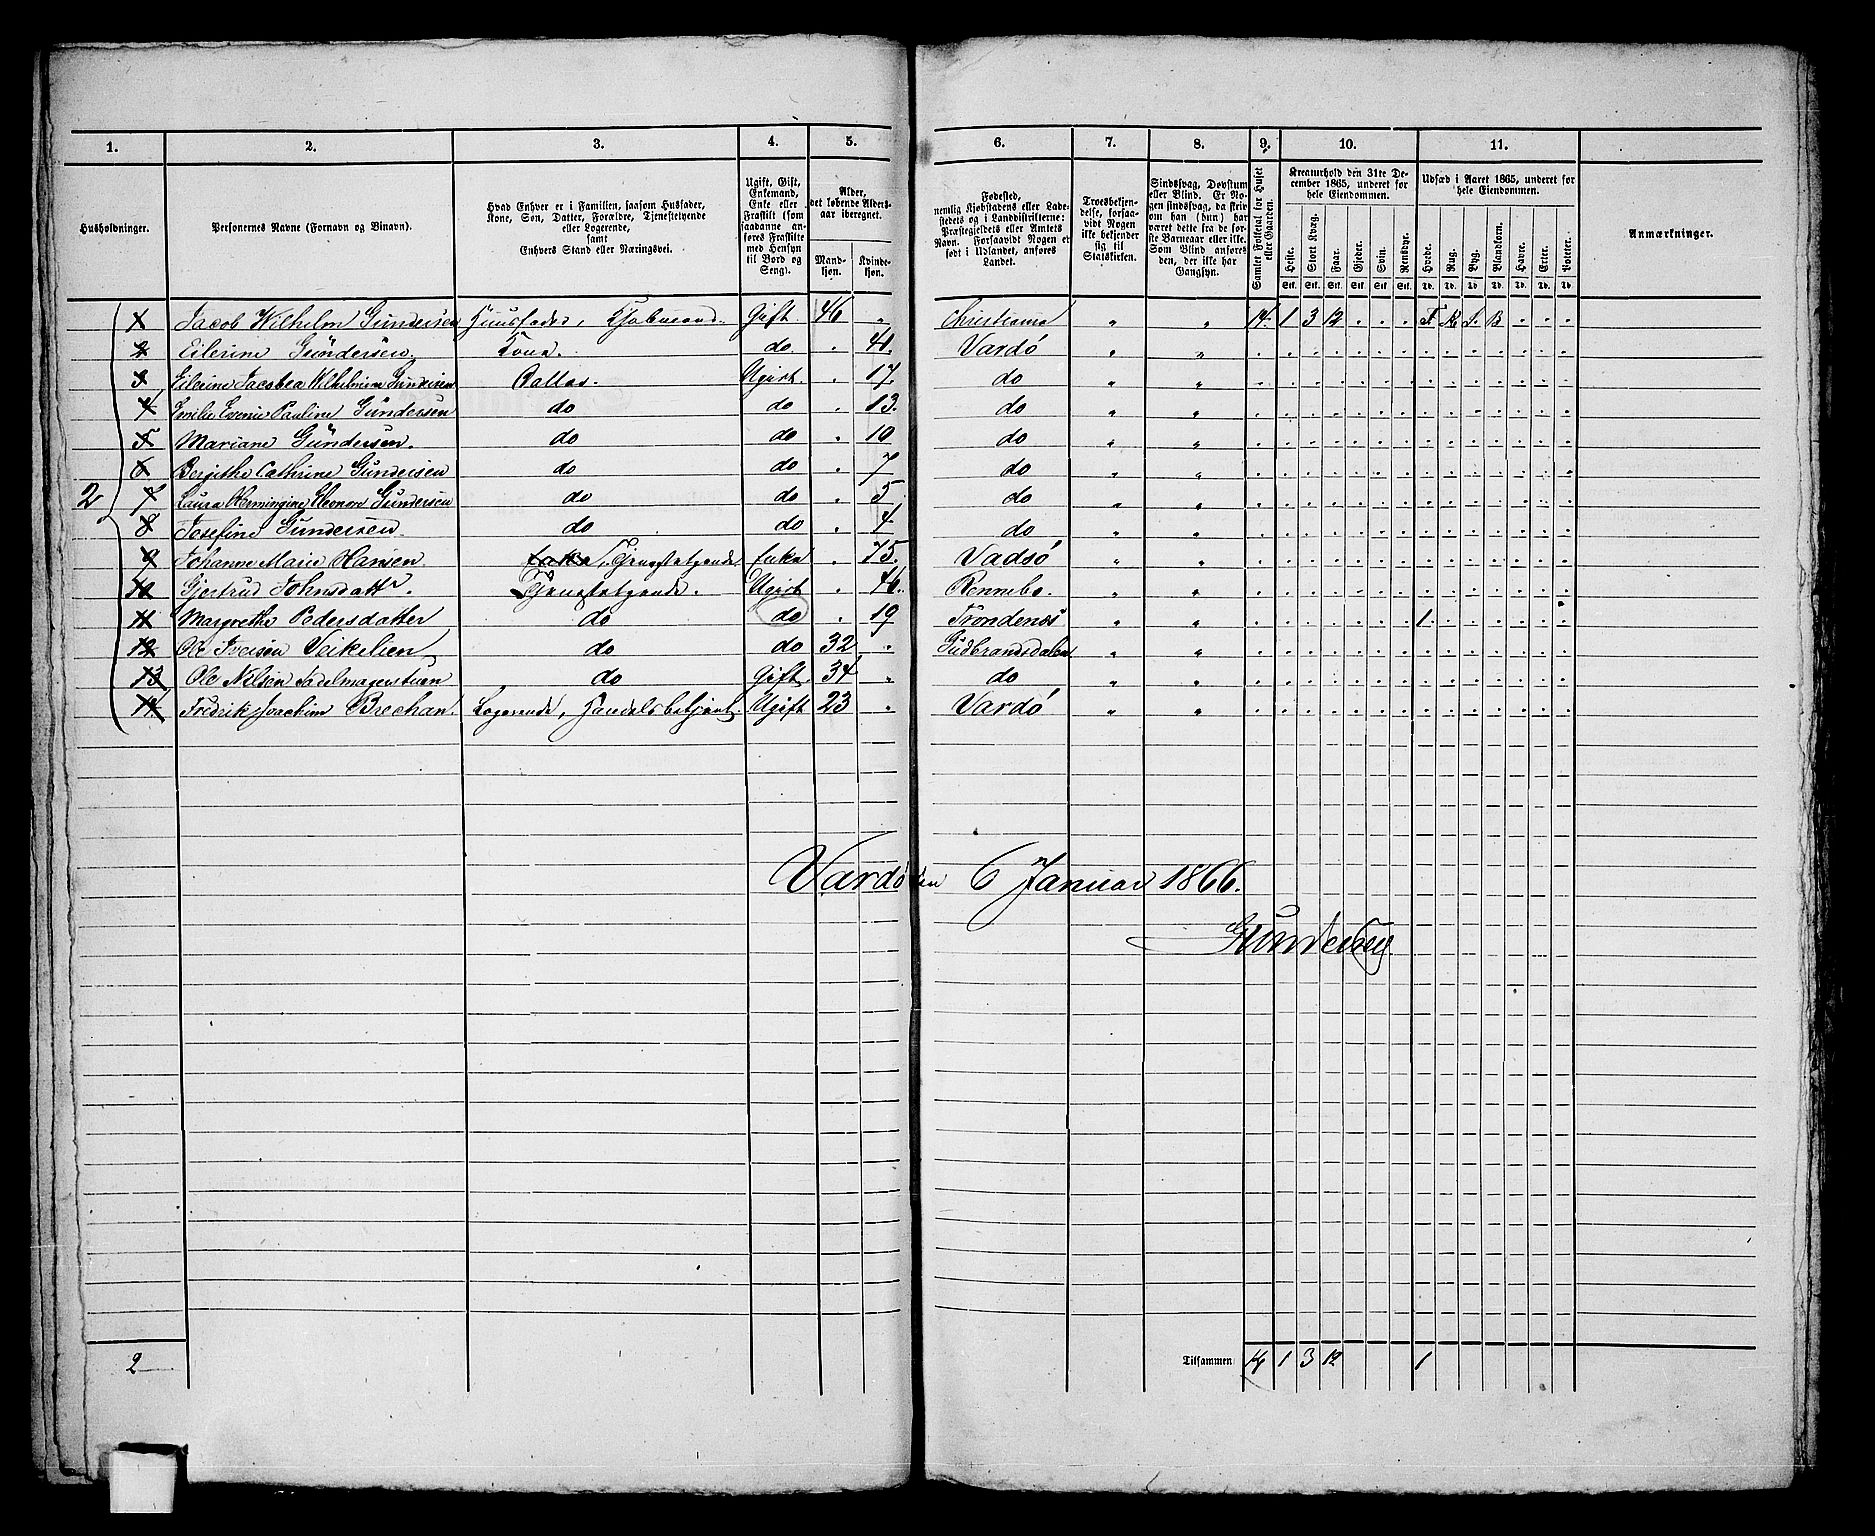 1. 2. 3. 4. 5. 6. 7. 8. 9. 10. 11.
Husholdninger.
Personernes Navne (Fornavn og Binavn).
Hvad Enhver er i Familien, saasom Husfader,
Kone, Søn, Datter, Forældre, Tjenestetyende
eller Logerende,
samt
Enhvers Stand eller Næringsvei.
Ugift, Gift,
Enkemand,
Enke eller
Fraskilt (som
saadanne an-
føres Fraskilte
med Hensyn
til Bord og
Seng).
Alder,
det løbende Alders-
aar iberegnet.
Mand-
kjøn.
Kvinde-
kjøn.
Fødested,
nemlig Kjøbstadens eller Lade-
stedets og i Landdistrikterne:
Præstegjeldets eller Amtets
Navn. Forsaavidt Nogen er
født i Udlandet, anføres
Landet.
Troesbekjen-
delse, forsaa-
vidt Nogen
ikke bekjender
sig til
Statskirken.
Sindssvag, Døvstum
eller Blind. Er No-
gen sindssvag, da skriv
om han (hun) har
været dette fra de før-
ste Barneaar eller ikke.
Som Blind anføres
den, der ikke har
Gangsyn.
Samlet Folketal for Huset
eller Gaarden.
Kreaturhold den 31te De-
cember 1865, underet for
hele Eiendommen.
Heste. Stort Kvæg. Faar. Gjeder. Svin. Rensdyr.
Stk. Stk. Stk. Stk. Stk. Stk.
Udsæd i Aaret 1865, underet for
hele Eiendommen.
Hvede. Rug. Byg. Blandkorn. Havre. Erter. Poteter.
Td. Td. Td. Td. Td. Td. Td.
Anmærkninger.
1 Jacob Wilhelm Gundersen Huusfader, Kjøbmand. Gift 46 „ Christiania „ „ 14. 1 3 12
2 Eilerine Gündersen. Kone. do. 41. Vardö „ „
3 Eilerine Jacobea Wilhelmine Gundersen Datter. Ugivt. 17. do „ „
4 Emilie Evenie Pauline Gündersen do do 13. do „ „
5 Mariane Gündersen. do do 10 do „ „
6 Bergithe Cathrine Gündersen do do 7 do „ „
2 7 Laura Hermingine Eleonore Gundersen do do 5 do „ „
8 Josefine Gundersen do do 4 do „ „
9 Johanne Marie Hansen Enke, Tjenestetyende Enke 75. Vadsö „ „
10 Gjertrud Johnsdattr. Tjenestetyende. Ugivt 46. Rennebo. „ „
11 Margrethe Pedersdatter do do 19 Trondenæs „ „ 1.
12 Ole Iversen Veikelien do do 32 „ Gudbrandsdalen „ „
13 Ole Nilsen Sadelmagerstuen do Gift 34 „ do „ „
14 Fredrik Joachim Brechan. Logerende, Handelsbetjent. Ugift 23 „ Vardö „ „
Vardö den 6 Januar 1866.
2 Tilsammen 14 1 3 12 1